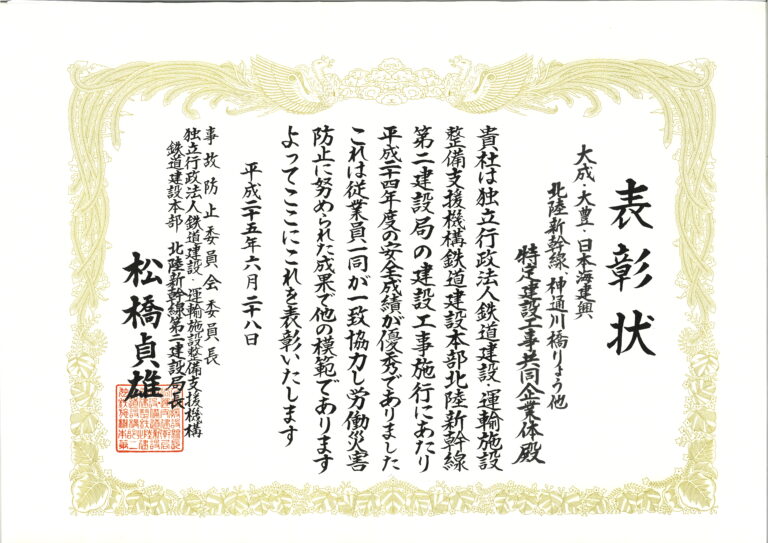 表彰状
大成・大豊・日本海建興
北陸新幹線、神通川橋りょう他
特定建設工事共同企業体殿
貴社は独立行政法人鉄道建設・運輸施設
整備支援機構鉄道建設本部北陸新幹線
第二建設局の建設工事施行にあたり
平成二十四年度の安全成績が優秀でありました
これは従業員一同が一致協力し労働災害
防止に努められた成果で他の模範であります
よってここにこれを表彰いたします
平成二十五年六月二十八日
事故防止委員会委員長
独立行政法人鉄道建設・運輸施設整備支援機構
鉄道建設本部 北陸新幹線第二建設局長
松橋貞雄